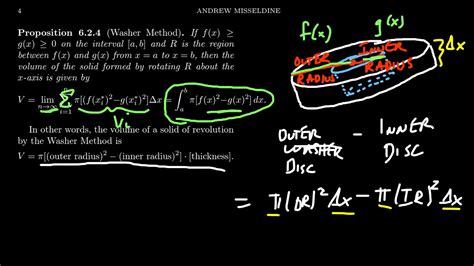 4
ANDREW MISSELDINE
Proposition 6.2.4 (Washer Method). If f(x) ≥
g(x) ≥ 0 on the interval [a, b] and R is the region
between f(x) and g(x) from x = a to x = b, then the
volume of the solid formed by rotating R about the
x-axis is given by
V = lim n→∞ n Σ i=1 π[(f(x_i^*)^2−g(x_i^*)^2]Δx = ∫_a^b π[f(x)^2−g(x)^2] dx.
V_i
In other words, the volume of a solid of revolution
by the Washer Method is
V = π[(outer radius)^2 − (inner radius)^2] · [thickness].
f(x) g(x)
OUTER RADIUS
INNER RADIUS
Δx
OUTER DISC − INNER DISC
= π(OR)^2 Δx − π(IR)^2 Δx